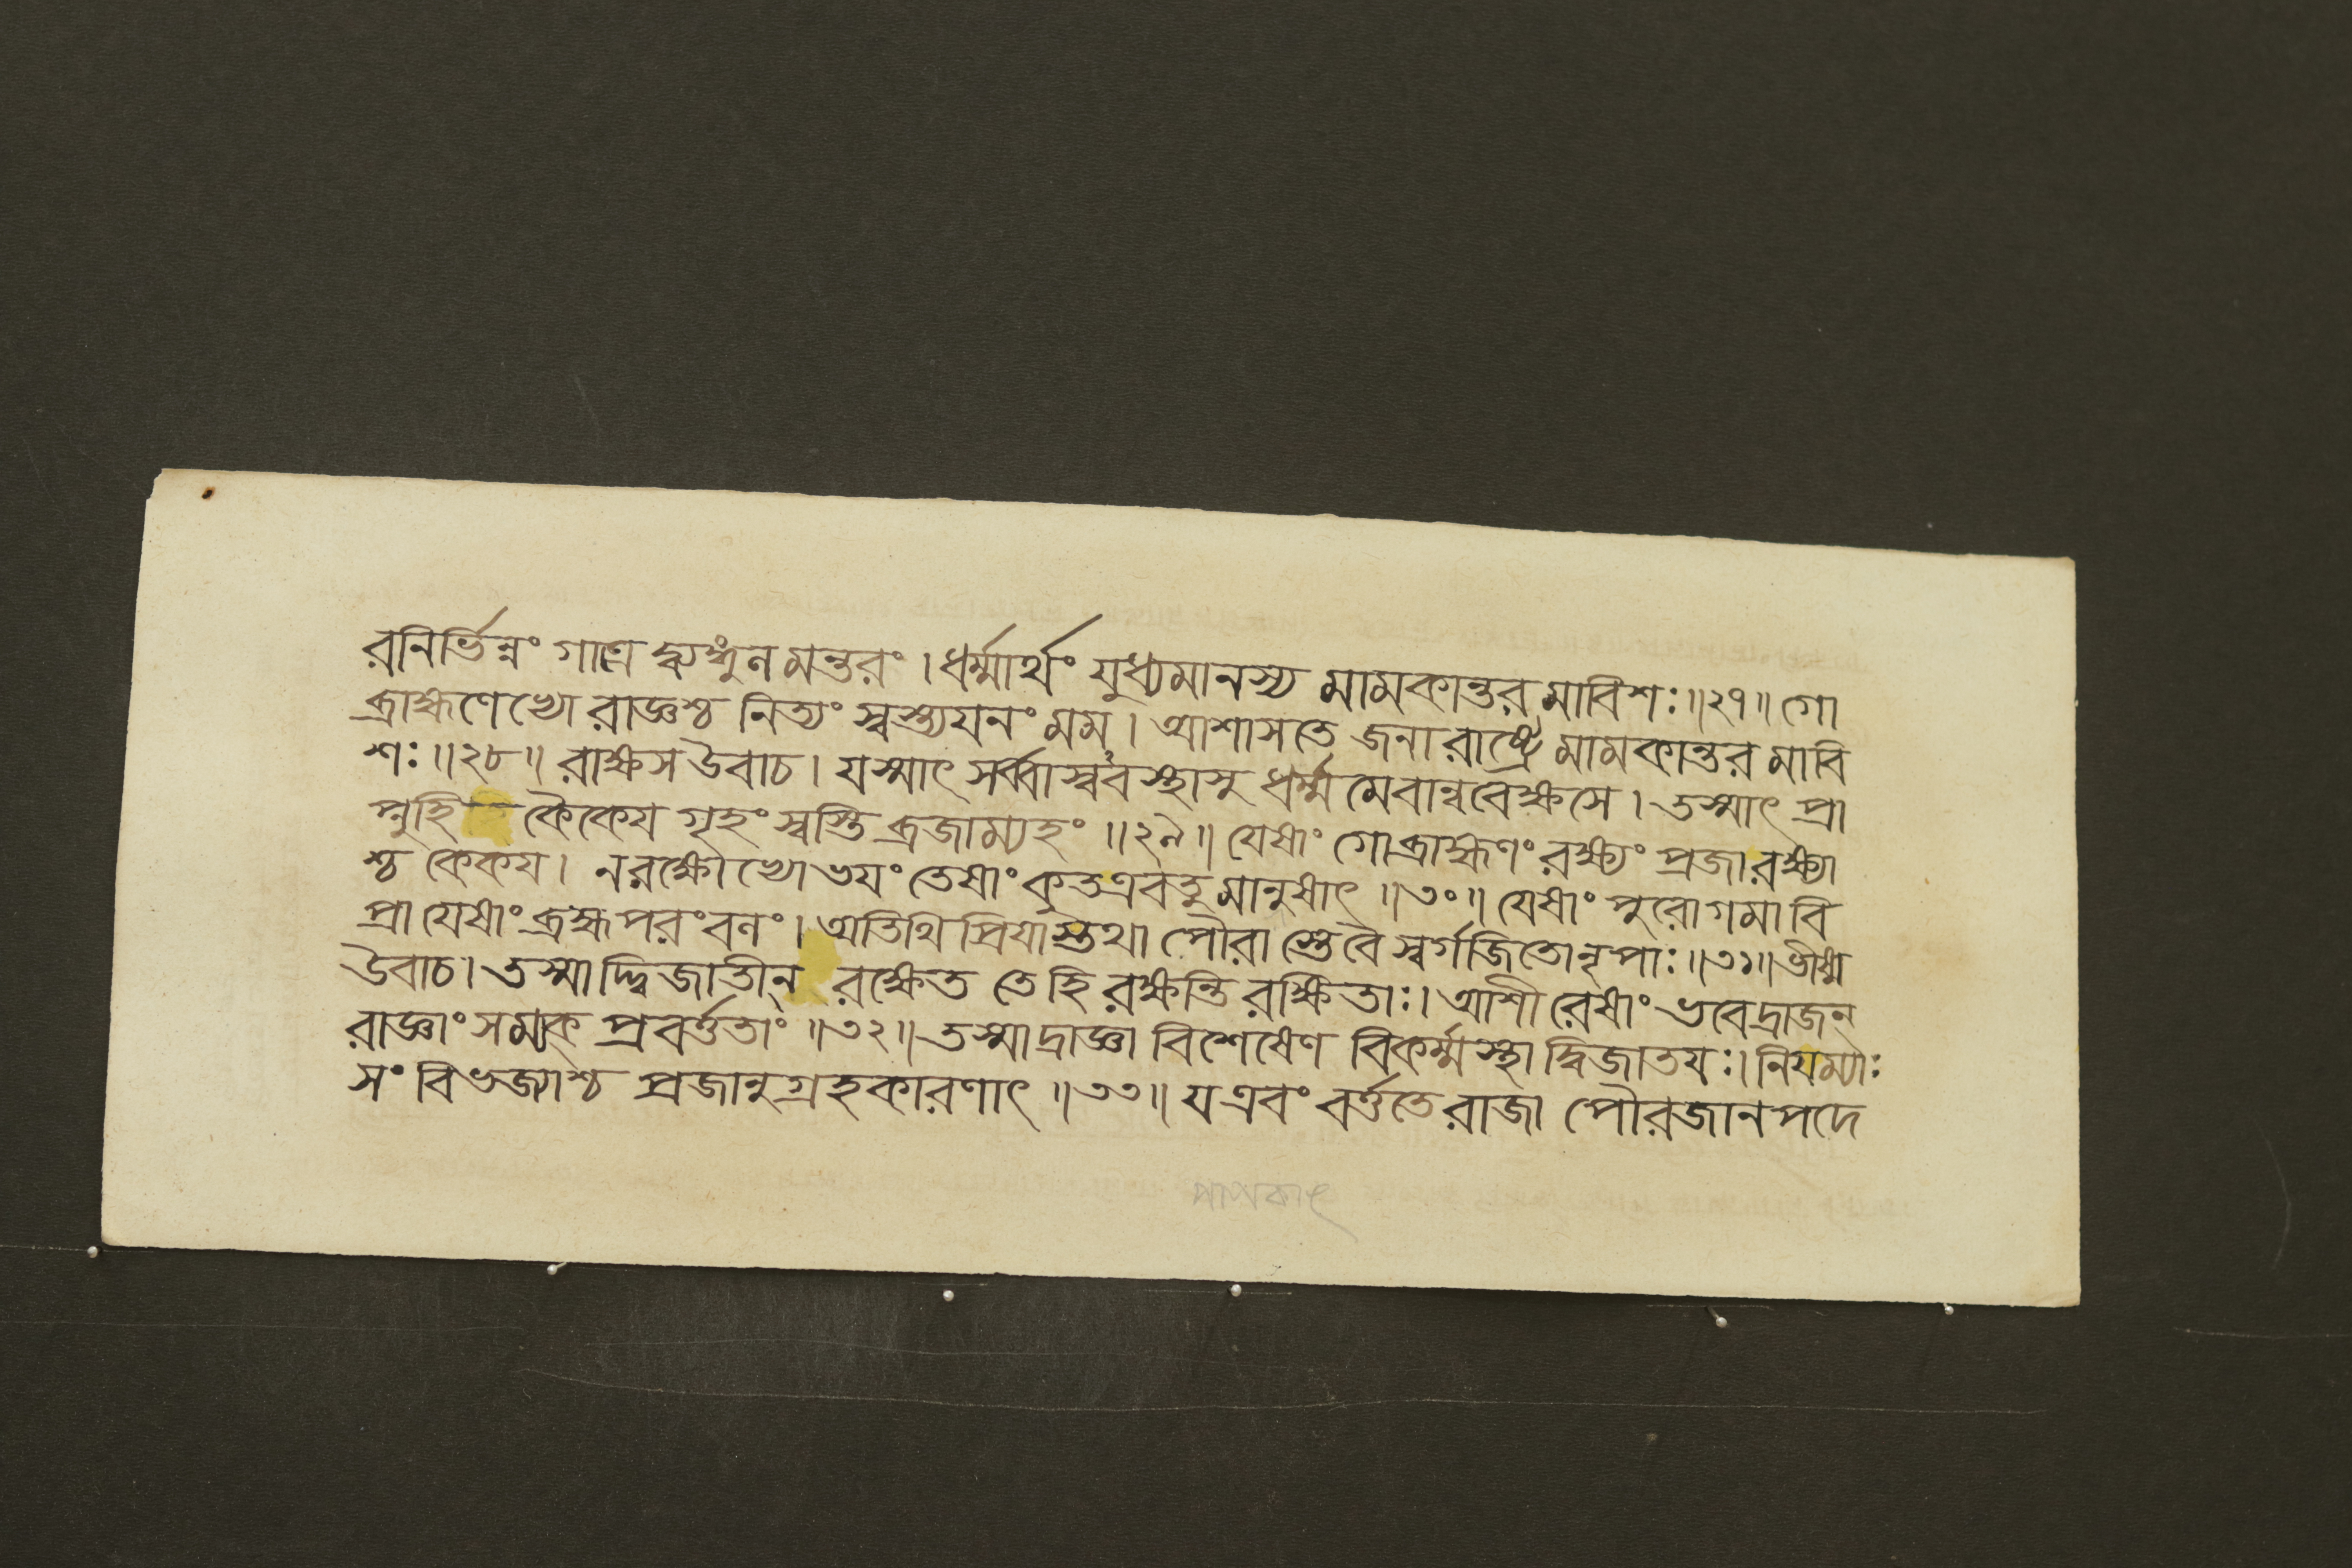 রনির্ভিন্নং গাত্রে দ্ব্যঙ্গুলমন্তরং । ধর্ম্মার্থং যুধ্যমানস্য মামকান্তর মাবিশঃ ॥২৭॥ গো
ব্রাহ্মণেভ্যো রাজ্ঞশ্চ নিত্যং স্বস্ত্যযনং মম । আশাসতে জনা রাষ্ট্রে মামকান্তর মাবি
শঃ ॥২৮॥ রাক্ষস উবাচ । যস্মাৎ সর্ব্বাস্ববস্থাসু ধর্ম্ম মেবান্ববেক্ষসে । তস্মাৎ প্রা
প্নুহি কৈকেয গৃহং স্বস্তি ব্রজাম্যহং ॥২৯॥ যেষাং গোব্রাহ্মণং রক্ষ্যং প্রজা রক্ষ্যা
শ্চ কেকয । ন রক্ষোভ্যো ভযং তেষাং কুত এব তু মানুষাৎ ॥৩০॥ যেষাং পুরোগমা বি
প্রা যেষাং ব্রহ্ম পরং বলং । অতিথিপ্রিযাস্তথা পৌরাস্তে বৈ স্বর্গজিতো নৃপাঃ ॥৩১॥ ভীষ্ম
উবাচ । তস্মাদ্দ্বিজাতীন্ রক্ষেত তে হি রক্ষন্তি রক্ষিতাঃ । আশী রেষাং ভবেদ্রাজন্
রাজ্ঞাং সম্যক্ প্রবর্ত্ততাং ॥৩২॥ তস্মাদ্রাজ্ঞা বিশেষেণ বিকর্ম্মস্থা দ্বিজাতযঃ । নিযম্যাঃ
সং বিভজ্যাশ্চ প্রজানুগ্রহকারণাৎ ॥৩৩॥ য এবং বর্ত্ততে রাজা পৌরজানপদে